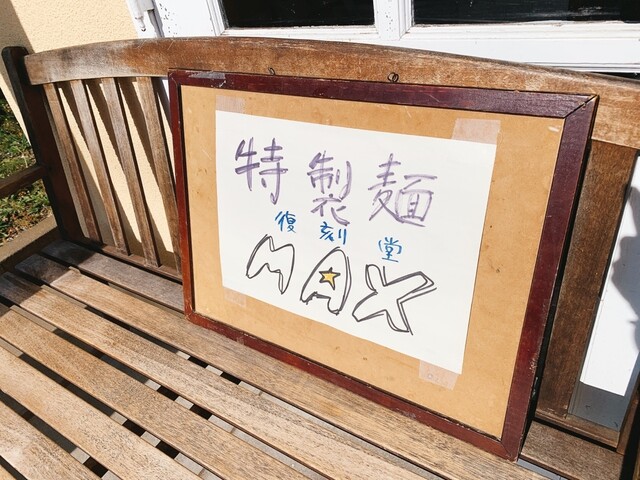 特製麺
復刻堂
MAX